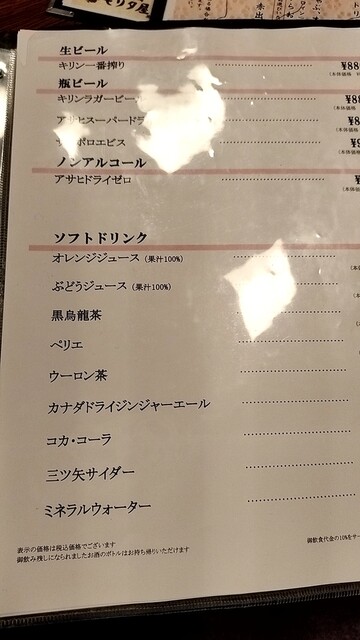 モリタ屋
生ビール
キリン一番搾り ¥88
瓶ビール
キリンラガービール ¥8
アサヒスーパードラ ¥8
ポロエビス
ノンアルコール
アサヒドライゼロ
ソフトドリンク
オレンジジュース (果汁100%)
ぶどうジュース (果汁100%)
黒烏龍茶
ペリエ
ウーロン茶
カナダドライジンジャーエール
コカ・コーラ
三ツ矢サイダー
ミネラルウォーター
表示の価格は税込価格でございます
御飲み残しになられましたお酒のボトルはお持ち帰りいただけます
御飲食代金の10%をサー